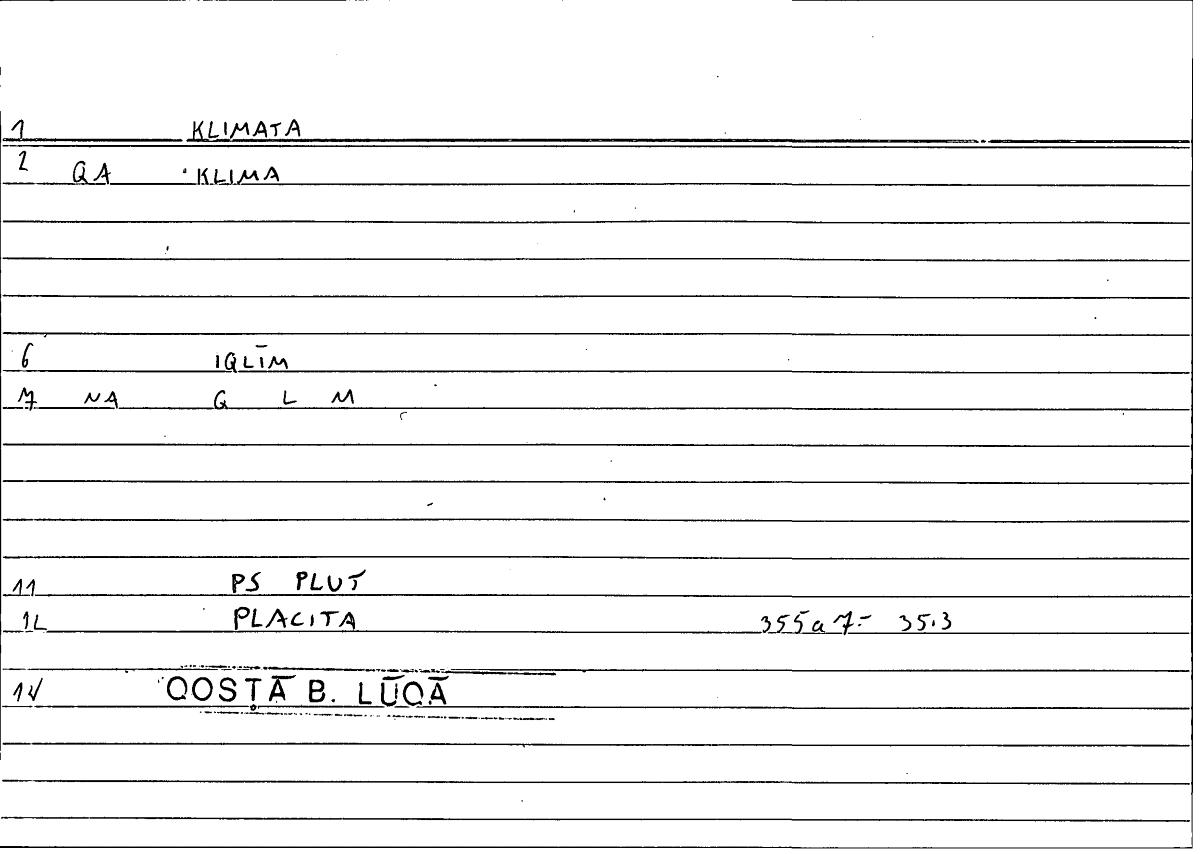 1 KLIMATA
2 QA KLIMA
6 IQLĪM
7 NA Q L M
11 PS PLUT
12 PLACITA 355a7- 35.3
14 QOSṬĀ B. LŪQĀ